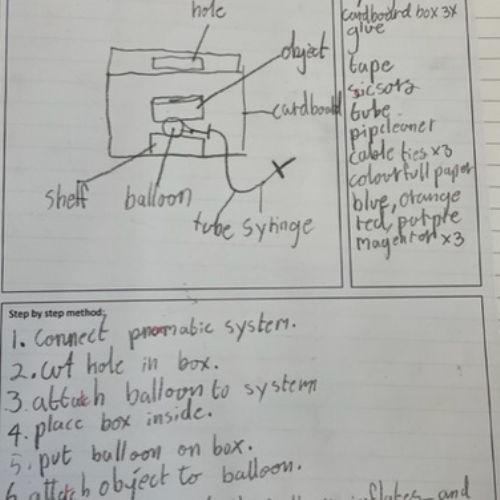 hole
object
cardboard
shelf
balloon
tube
syringe
cardboard box 3x
glue
tape
sicsors
tube
pipcleaner
cable ties x3
colourfull paper
blue, orange
red, purple
magenton x3
Step by step method:
1. Connect pnomatic system.
2. cut hole in box.
3. attach balloon to system
4. place box inside.
5. put balloon on box.
6. attach object to balloon.
inflates and